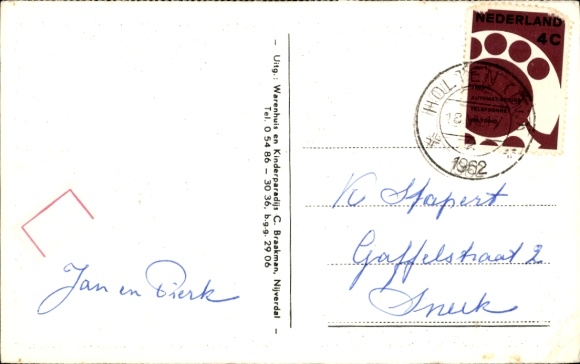 NEDERLAND
4C
HOLTEN
1962
- Uitg.: Warenhuis en Kinderparadijs C. Braakman, Nijverdal -
Tel. 0 54 86 - 30 36, b.g.g. 29 06
K Stapert
Gaffelstraat 2
Sneek
Jan en Dierk